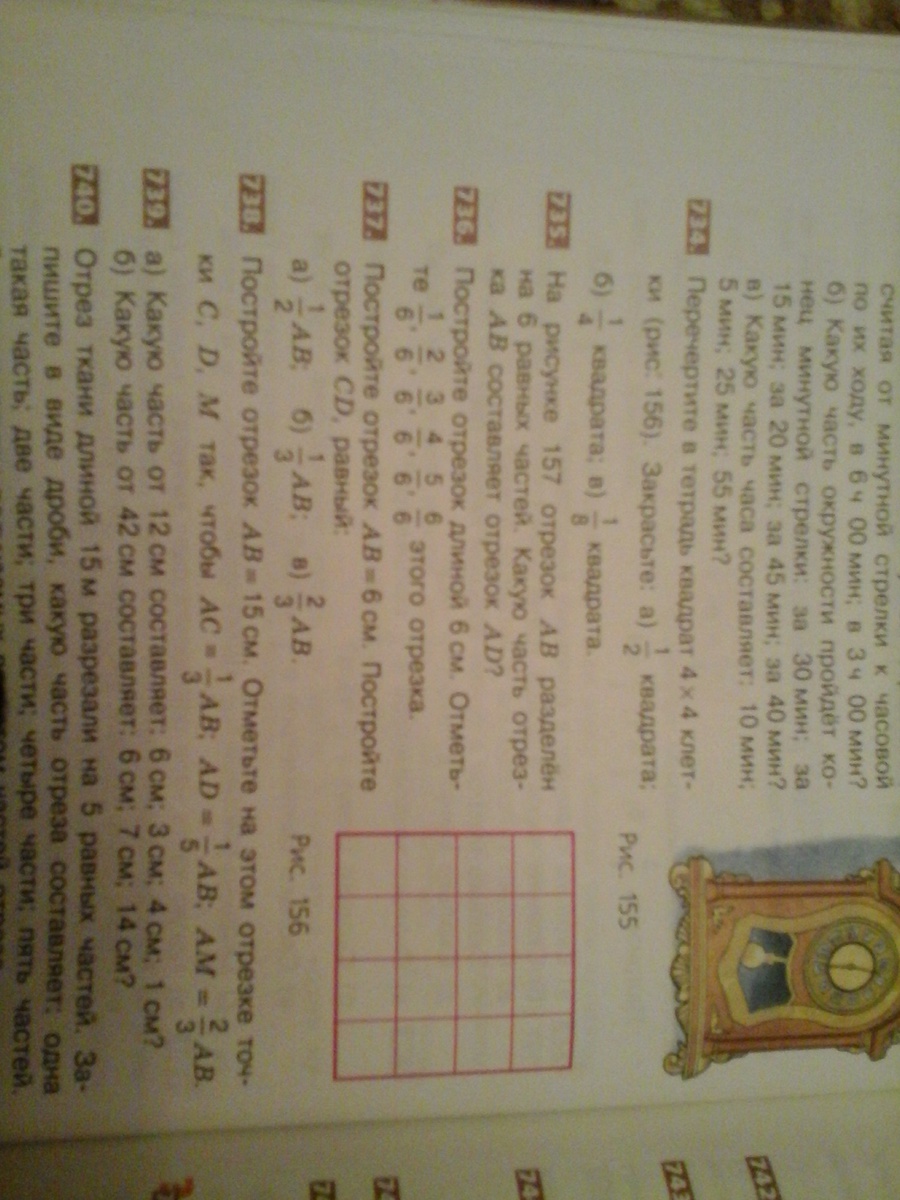 считая от минутной стрелки к часовой
по их ходу, в 6 ч 00 мин; в 3 ч 00 мин?
б) Какую часть окружности пройдёт ко-
нец минутной стрелки: за 30 мин; за
15 мин; за 20 мин; за 45 мин; за 40 мин?
в) Какую часть часа составляет: 10 мин;
5 мин; 25 мин; 55 мин?
Рис. 155
734. Перечертите в тетрадь квадрат 4 × 4 клет-
ки (рис. 156). Закрасьте: а) 1/2 квадрата;
б) 1/4 квадрата; в) 1/8 квадрата.
735. На рисунке 157 отрезок AB разделён
на 6 равных частей. Какую часть отрез-
ка AB составляет отрезок AD?
736. Постройте отрезок длиной 6 см. Отметь-
те 1/6, 2/6, 3/6, 4/6, 5/6, 6/6 этого отрезка.
737. Постройте отрезок AB = 6 см. Постройте
отрезок CD, равный:
а) 1/2 AB; б) 1/3 AB; в) 2/3 AB.
Рис. 156
738. Постройте отрезок AB = 15 см. Отметьте на этом отрезке точ-
ки C, D, M так, чтобы AC = 1/3 AB; AD = 1/5 AB; AM = 2/3 AB.
739. а) Какую часть от 12 см составляет: 6 см; 3 см; 4 см; 1 см?
б) Какую часть от 42 см составляет: 6 см; 7 см; 14 см?
740. Отрез ткани длиной 15 м разрезали на 5 равных частей. За-
пишите в виде дроби, какую часть отреза составляет: одна
такая часть; две части; три части; четыре части; пять частей.